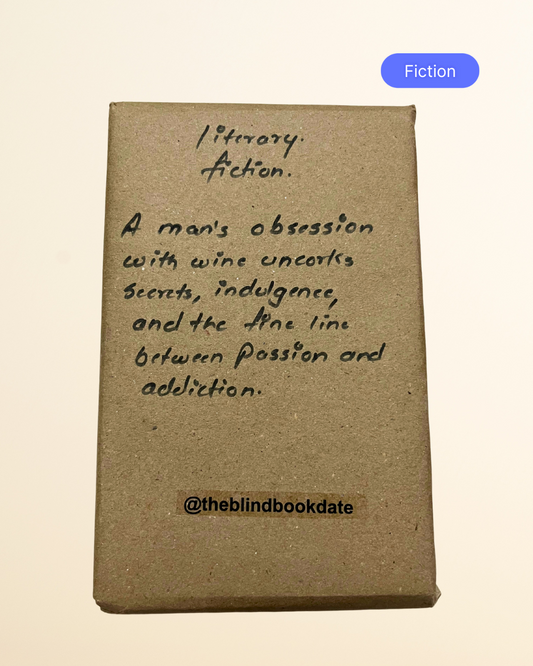 Fiction
literary.
fiction.
A man's obsession
with wine uncorks
secrets, indulgence,
and the fine line
between passion and
addiction.
@theblindbookdate